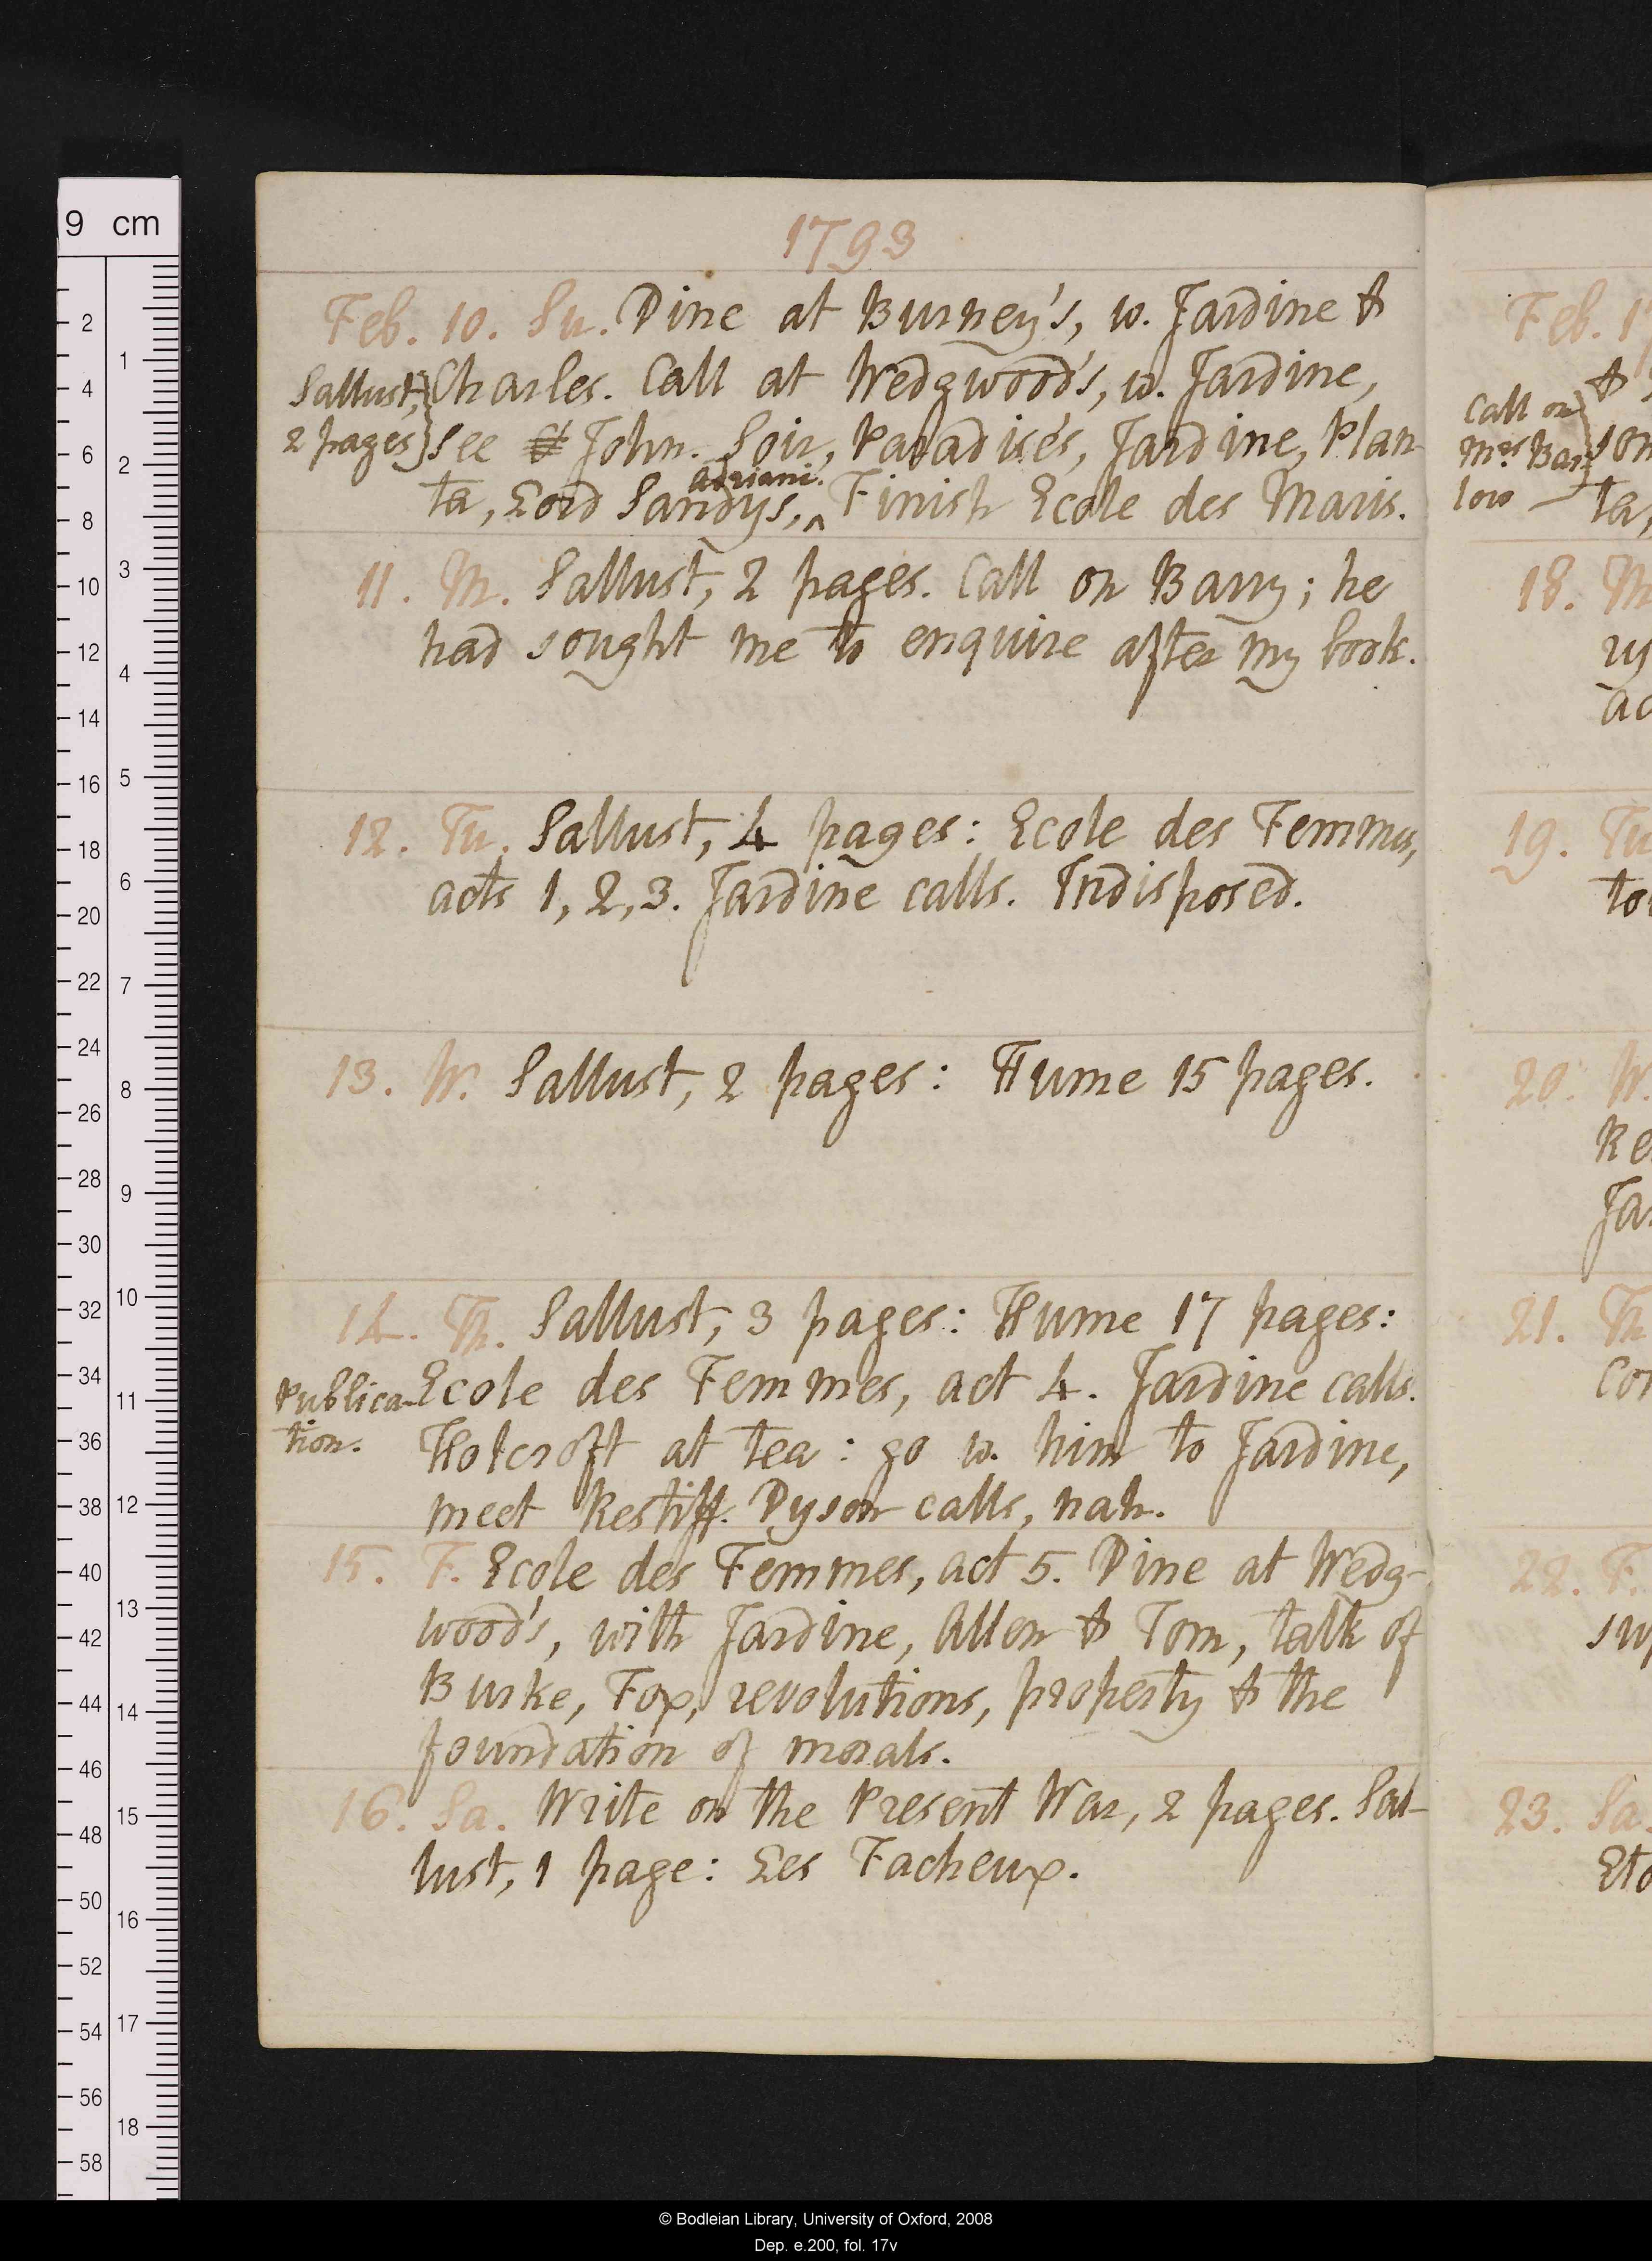 9 cm
1793
Feb. 10. Su. Dine at Burney's, w. Jardine &
Charles. Call at Wedgwood's, w. Jardine,
Sallust, 2 pages
see John. Soir, Paradise's, Jardine, Plan-
ta, Lord Sandys, ^ Adriani. Finish Ecole des Maris.
11. M. Sallust, 2 pages. Call on Barry; he
had sought me to enquire after my book.
12. Tu. Sallust, 4 pages: Ecole des Femmes,
acts 1, 2, 3. Jardine calls. Indisposed.
13. W. Sallust, 2 pages: Hume 15 pages.
14. Th. Sallust, 3 pages: Hume 17 pages:
Publica-
tion.
Ecole des Femmes, act 4. Jardine calls.
Holcroft at tea: go w. him to Jardine,
meet Restiff. Dyson calls, nah.
15. F. Ecole des Femmes, act 5. Dine at Wedg-
wood's, with Jardine, Allen & Tom, talk of
Burke, Fox, revolutions, property & the
foundation of morals.
16. Sa. Write on the Present War, 2 pages. Sal-
lust, 1 page: Les Facheux.
Feb. 17
&
Call on
Mrs Bar-
low
son
ta,
18. M
ry
ac
19. Tu
to
20. W.
Re
Ja
21. Th
Co
22. F.
sup
23. Sa.
Eto
© Bodleian Library, University of Oxford, 2008
Dep. e.200, fol. 17v